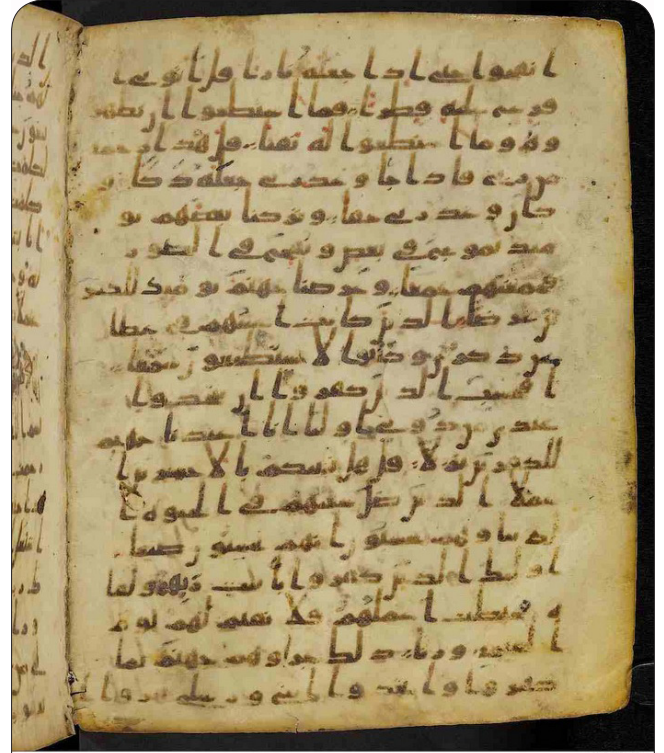 انفخوا حتى اذا جعله نارا قل اتوني ا
فرغ عليه قطرا فما اسطعوا ان يظهر
وه وما استطعوا له نقبا قل هذا رحمة
من ربي فاذا جا وعد ربي جعله دكا و
كان وعد ربي حقا وتركنا بعضهم يو
مئذ يموج في بعض ونفخ في الصور
فجمعنهم جمعا وعرضنا جهنم يومئذ للكفر
ين عرضا الذين كانت اعينهم في غطا
عن ذكري وكانوا لا يستطيعون سمعا
افحسب الذين كفروا ان يتخذوا
عبدي من دوني اوليا انا اعتدنا جهنم
للكفرين نزلا قل هل ننبئكم بالاخسرين ا
عملا الذين ضل سعيهم في الحيوة ا
لدنيا وهم يحسبون انهم يحسنون صنعا
اولئك الذين كفروا بايت ربهم ولقا
يه فحبطت اعملهم فلا نقيم لهم يوم
القيمة وزنا ذلك جزاوهم جهنم بما
كفروا واتخذوا ايتي ورسلي هزوا ا